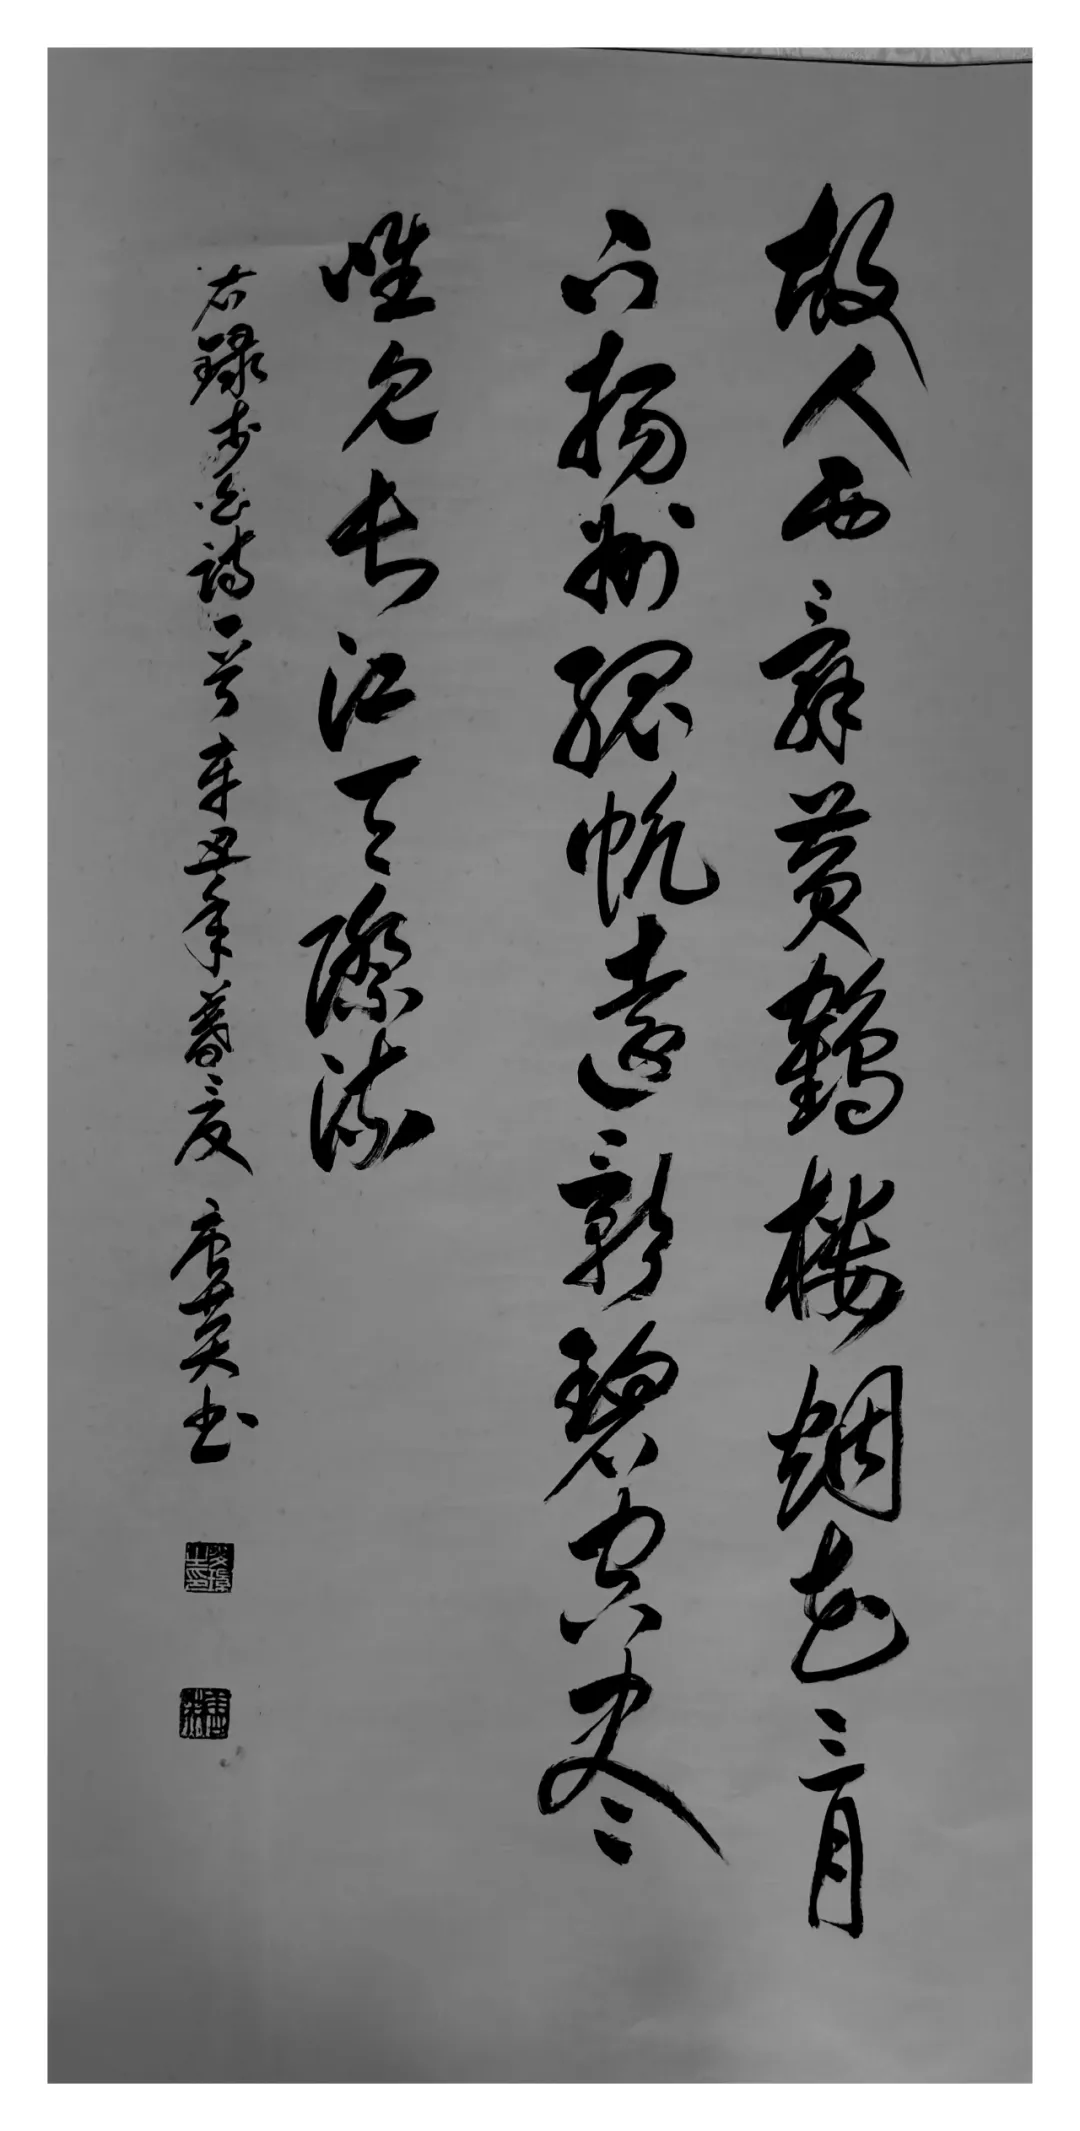 故人西辞黄鹤楼烟花三月
下扬州孤帆遠影碧空尽
唯见长江天際流
右録李白詩一首辛丑年暮夏唐英书